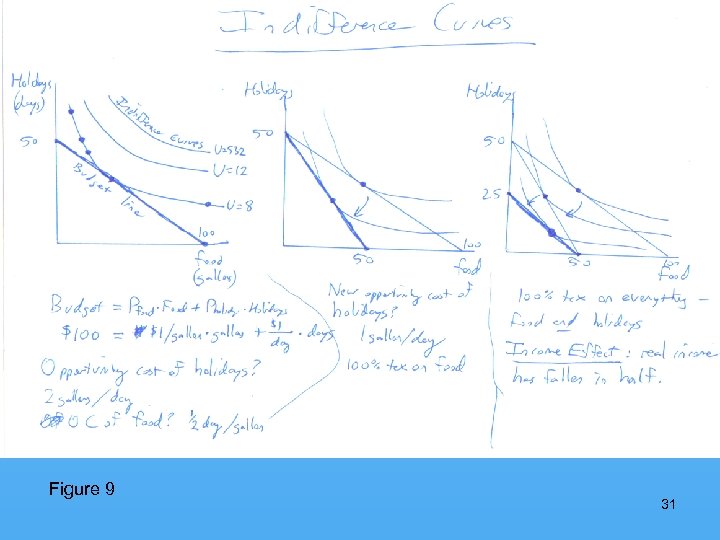 Indifference Curves
Holidays
(days)
50
Indifference curves
U=532
U=12
U=8
Budget line
100
food
(gallons)
Holidays
50
50
100
food
Holidays
50
25
50
100
Food
Budget = Pfood·Food + Pholiday·Holidays
$100 = $1/gallon·gallons + $1/day · days
Opportunity cost of holidays?
2 gallons/day
OC of food? ½ day/gallon
New opportunity cost of
holidays?
1 gallon/day
100% tax on food
100% tax on everything –
food and holidays
Income Effect: real income
has fallen in half.
Figure 9
31